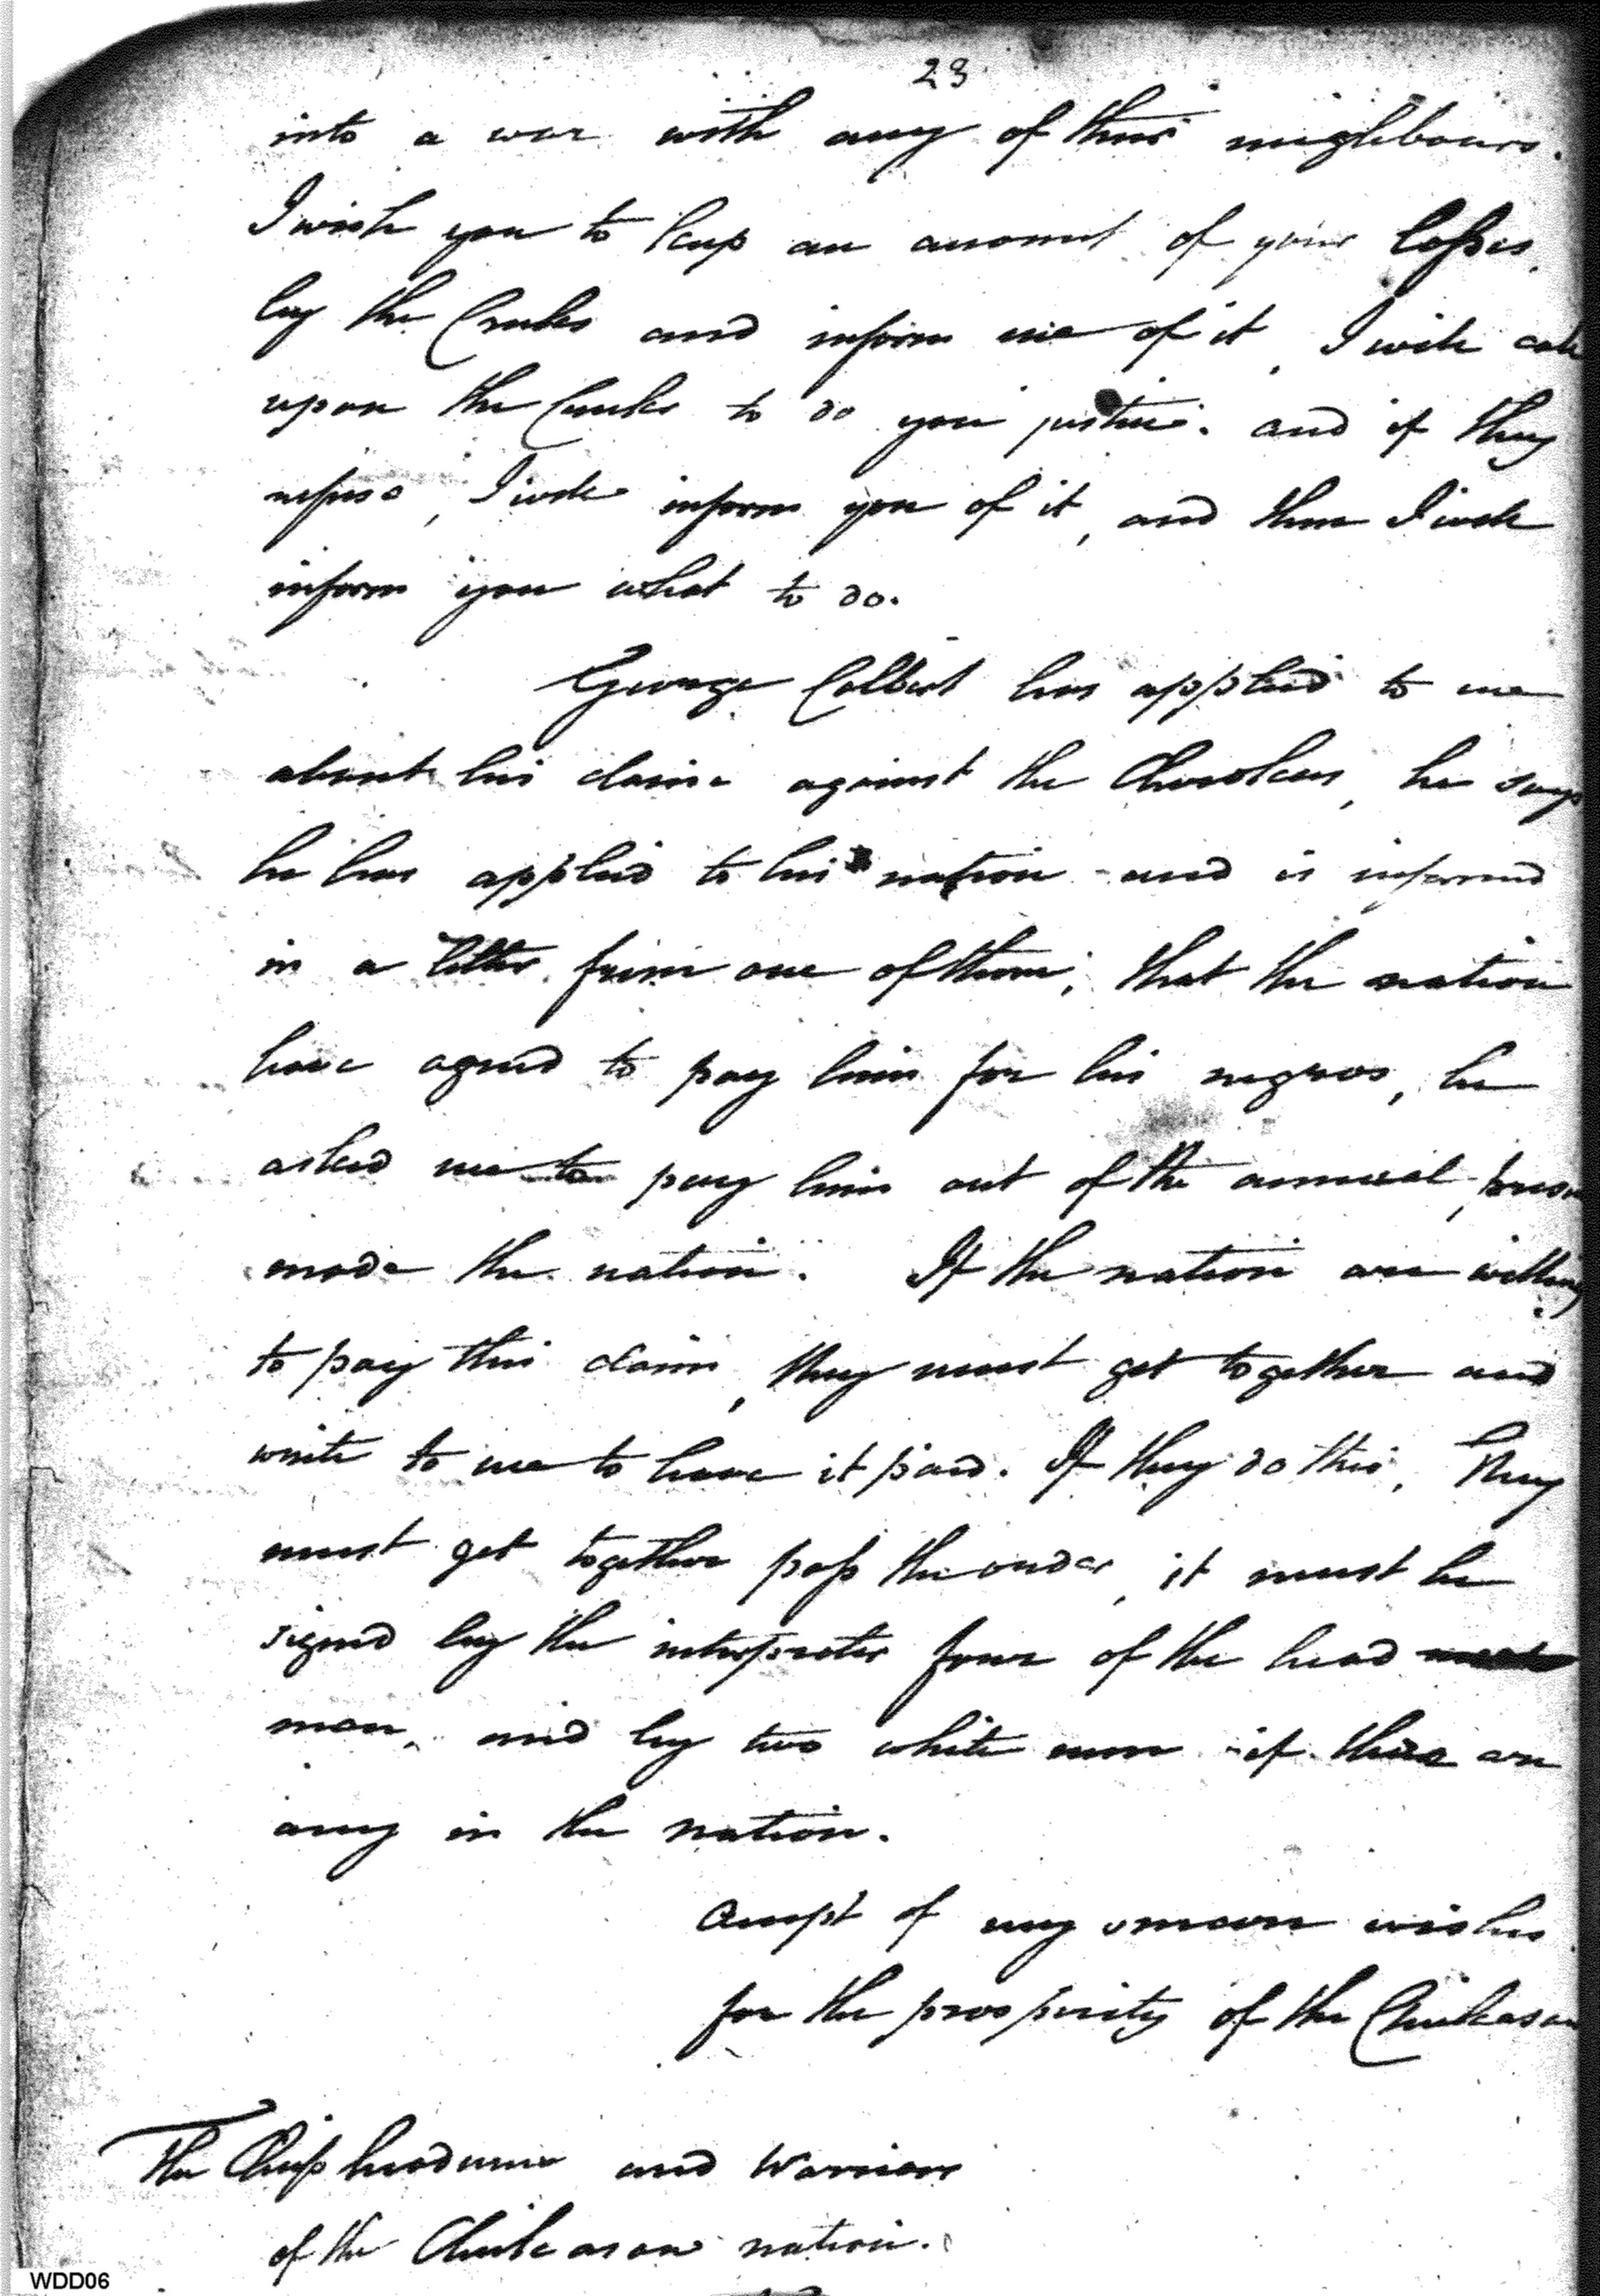 23
into a war with any of their neighbours.
I wish you to keep an account of your losses,
by the Creeks and inform me of it, I will call
upon the Creeks to do you justice. and if they
refuse, I will inform you of it, and then I will
inform you what to do.
George Colbert has applied to me
about his claim against the Cherokees, he says
he has applied to his nation and is informed
in a letter from one of them, that the nation
have agreed to pay him for his negros, he
asked me to pay him out of the annual
made the nation. If the nation are willing
to pay this claim, they must get together and
write to me to have it paid. If they do this, they
must get together pass the order, it must be
signed by the interpreter four of the head
men, and by two white men if there are
any in the nation.
Accept of my sincere wishes
for the prosperity of the Chickasaws
The Chiefs headmen and Warriors
of the Chickasaw nation.
WDD06